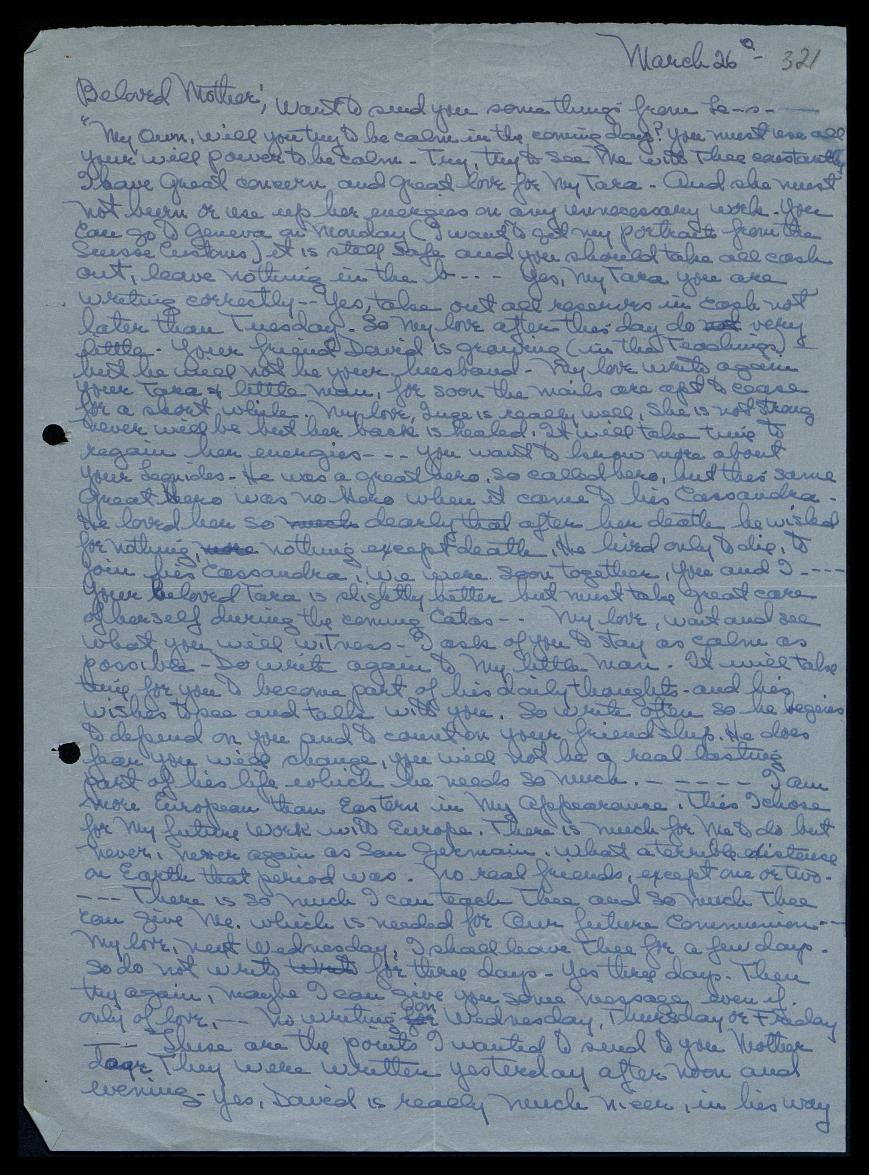 March 26ᵃ - 321
Beloved Mother', want to send you some things from Le--s---
"My Own, will you try to be calm in the coming days? You must use all
your will power to be calm - Try, try to see Me with Thee constantly
I have Great concern and great love for My Tara - And she must
not burn or use up her energies on any unnecessary work. You
can go to Geneva on Monday (I want to get my portraits from the
Suisse Customs) it is still safe and you should take all cash
out, leave nothing in the b---- Yes, My Tara you are
writing correctly -- Yes, take out all reserves in cash not
later than Tuesday. So My love after this day do not very
little - Your friend David is growing (in the Teachings)
but he will not be your husband - My love write again
your Tara & little man, for soon the mails are apt to cease
for a short while. My love, Inge is really well, she is not strong
never will be but her back is healed. It will take time to
regain her energies --- You want to know more about
your Leonides - He was a great hero, so called hero, but this same
Great Hero was no Hero when it came to his Cassandra -
He loved her so much dearly that after her death he wished
for nothing, more nothing except death, He lived only to die, to
join his Cassandra, We were soon together, you and I ----
Your beloved Tara is slightly better but must take great care
of herself during the coming Catas-- My love, wait and see
what you will witness - I ask of you to stay as calm as
possible - Do write again to My little man - It will take
time for you to become part of his daily thoughts - and his
wishes to see and talk with you. So write often so he begins
to depend on you and to count on your friendship. He does
fear you will change, you will not be a real lasting
part of his life which he needs so much. - ----- I am
more European than Eastern in My appearance. This I chose
for My future Work with Europe. There is much for Me to do but
never, never again as San Germain. What a terrible distance
on Earth that period was. No real friends, except one or two -
--- There is so much I can teach Thee and so much Thee
can give Me. which is needed for Our future Communion --
My love, next Wednesday, I shall leave Thee for a few days -
So do not write for three days - Yes three days. Then
try again, maybe I can give you some message even if
only of love, -- No writing on Wednesday, Thursday or Friday
--- "These are the points I wanted to send to you Mother
They were written yesterday after noon and
evening - Yes, David is really much nicer, in his way